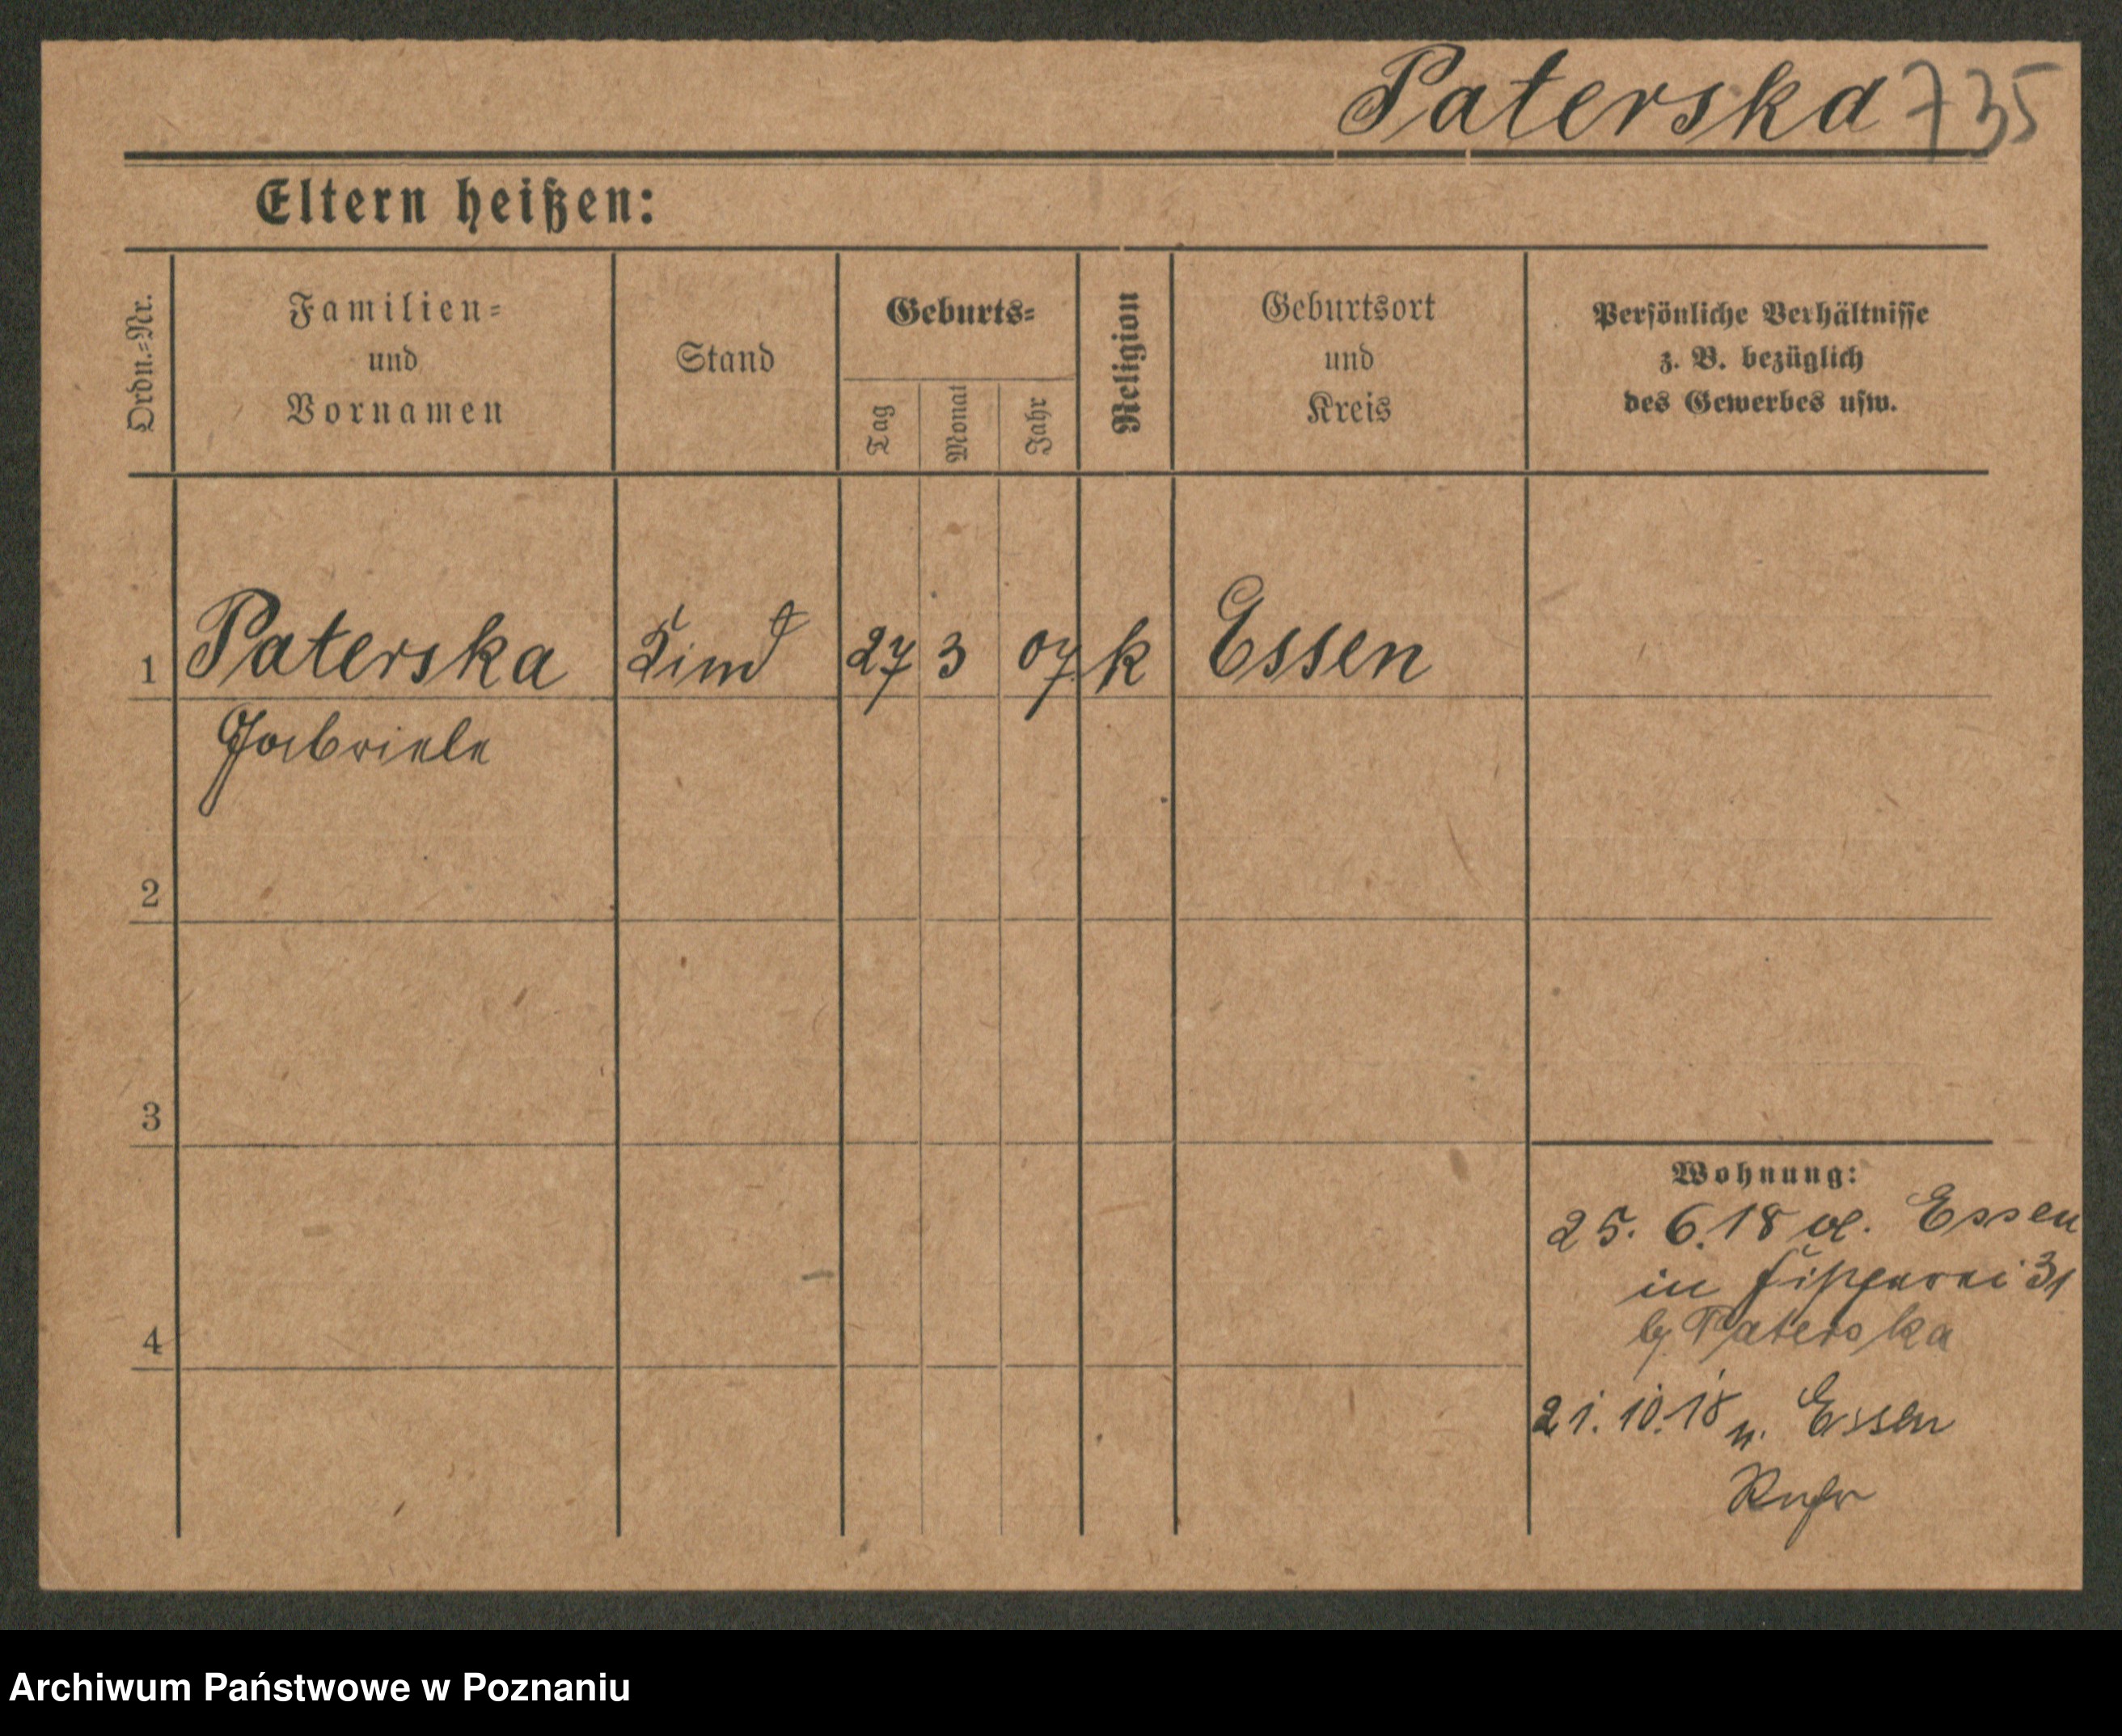 Paterska 735
Eltern heißen:
Ordn.-Nr.
Familien-
und
Vornamen
Stand
Geburts-
Tag
Monat
Jahr
Religion
Geburtsort
und
Kreis
Persönliche Verhältnisse
z. B. bezüglich
des Gewerbes usw.
1 Paterska Kind 27 3 07 k Essen
Gabriele
2
3
4
Wohnung:
25. 6. 18 Essen
in Fischerei 31
b. Paterska
21. 10. 18 n. Essen
Ruhr
Archiwum Państwowe w Poznaniu